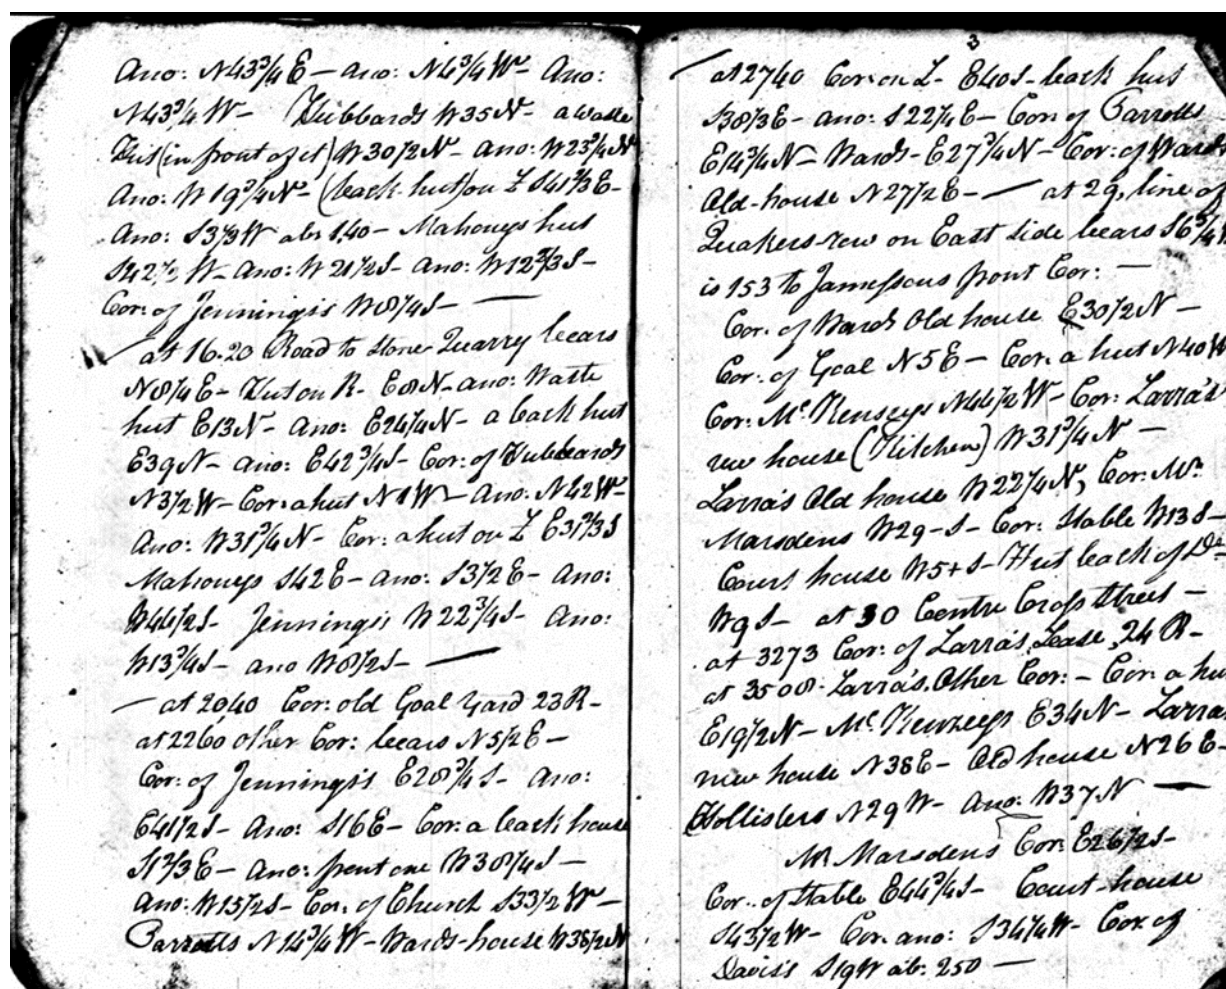 Ano: N43¾E – ano: N4¾W – Ano:
N43¾W – Hubbards W35N – a waste
Hut (in front of it) W30½N – ano: W23¾N
Ano: W19¾N – (back hut) on L S41⅔E –
Ano: S3⅓W abt 1.40 – Mahonys hut
S42½W – ano: W21½S – ano: W12⅔S –
Cor: of Jennings's W8¼S –
at 16.20 Road to Stone Quarry bears
N8¼E – Hut on R. E8N – ano: Waste
hut E13N – ano: E24¼N – a back hut
E39N – ano: E42¾S – Cor: of Hubbards
N3½W – Cor: a hut N1W – Ano: N42W –
Ano: W31¾N – Cor: a hut on L E31⅔S
Mahonys S42E – ano: S3½E – ano:
W44½S – Jennings's W22¾S – ano:
W13¾S – ano W8½S –
– at 2040 Cor: old Goal Yard 23R –
at 2260 other Cor: bears N5½E –
Cor: of Jennings's E28¾S – ano:
E41½S – Ano: S16E – Cor: a back house
S1⅔E – ano: front one W38¼S –
ano: W15½S – Cor: of Church S33½W –
Parrotts N14¾W – Wards – house W38½N
3
at 2740 Cor: on L – E40S – back hut
S38⅓E – ano: S22¼E – Cor: of Parrotts
E14¾N – Wards – E27¾N – Cor: of Wards
Old – house N27½E – at 29, line of
Quakers row on East side bears S6¾W
is 153 to Jamesons front Cor: –
Cor: of Wards Old house E30½N –
Cor: of Goal N5E – Cor: a hut N40W
Cor: Mc.Kenseys N44½W – Cor: Larra's
new house (Kitchen) W31¾N –
Larra's Old house W22¼N, Cor: Mr.
Marsdens W29 – S – Cor: Stable W13S –
Court house W5+S – Hut back of Do
W9S – at 30 Centre Cross Street –
at 3273 Cor: of Larra's Lease, 24R –
at 3508. Larra's Other Cor: – Cor: a hut
E19½N – Mc.Kenzeys E34N – Larra
new house N38E – Old house N26E –
Hollisters N29W – Ano: W37N –
Mr Marsdens Cor: E26½S –
Cor: of Stable E44¾S – Court – house
S43½W – Cor: ano: S34¼W – Cor: of
Davis's S19W ab: 250 –